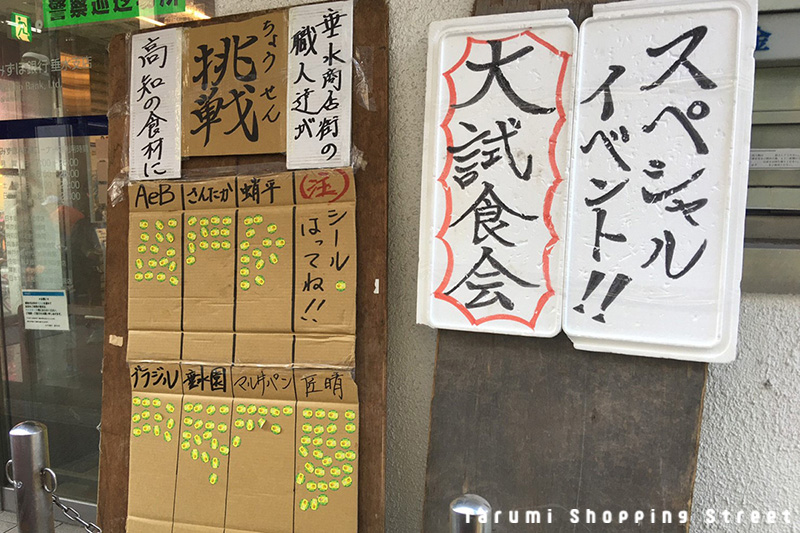 警察巡回
みずほ銀行
垂水商店街の
職人達が
ちょうせん
挑戦
高知の食材に
AeB
さんたか
蛸平
注
シール
はってね!!
ブラジル
垂水園
マルナカパン
匠晴
スペシャル
イベント!!
大試食会
Tarumi Shopping Street